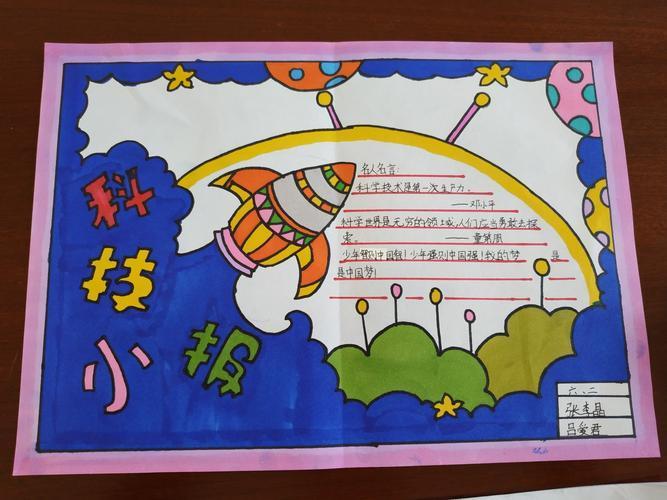 科
技
小
报
名人名言:
科学技术是第一次生产力。
——邓小平
科学世界是无穷的领域,人们应当勇敢去探
索。 ——童第周
少年智则中国智!少年强则中国强!我的梦 是
是中国梦!
六、二
张李晶
吕爱君